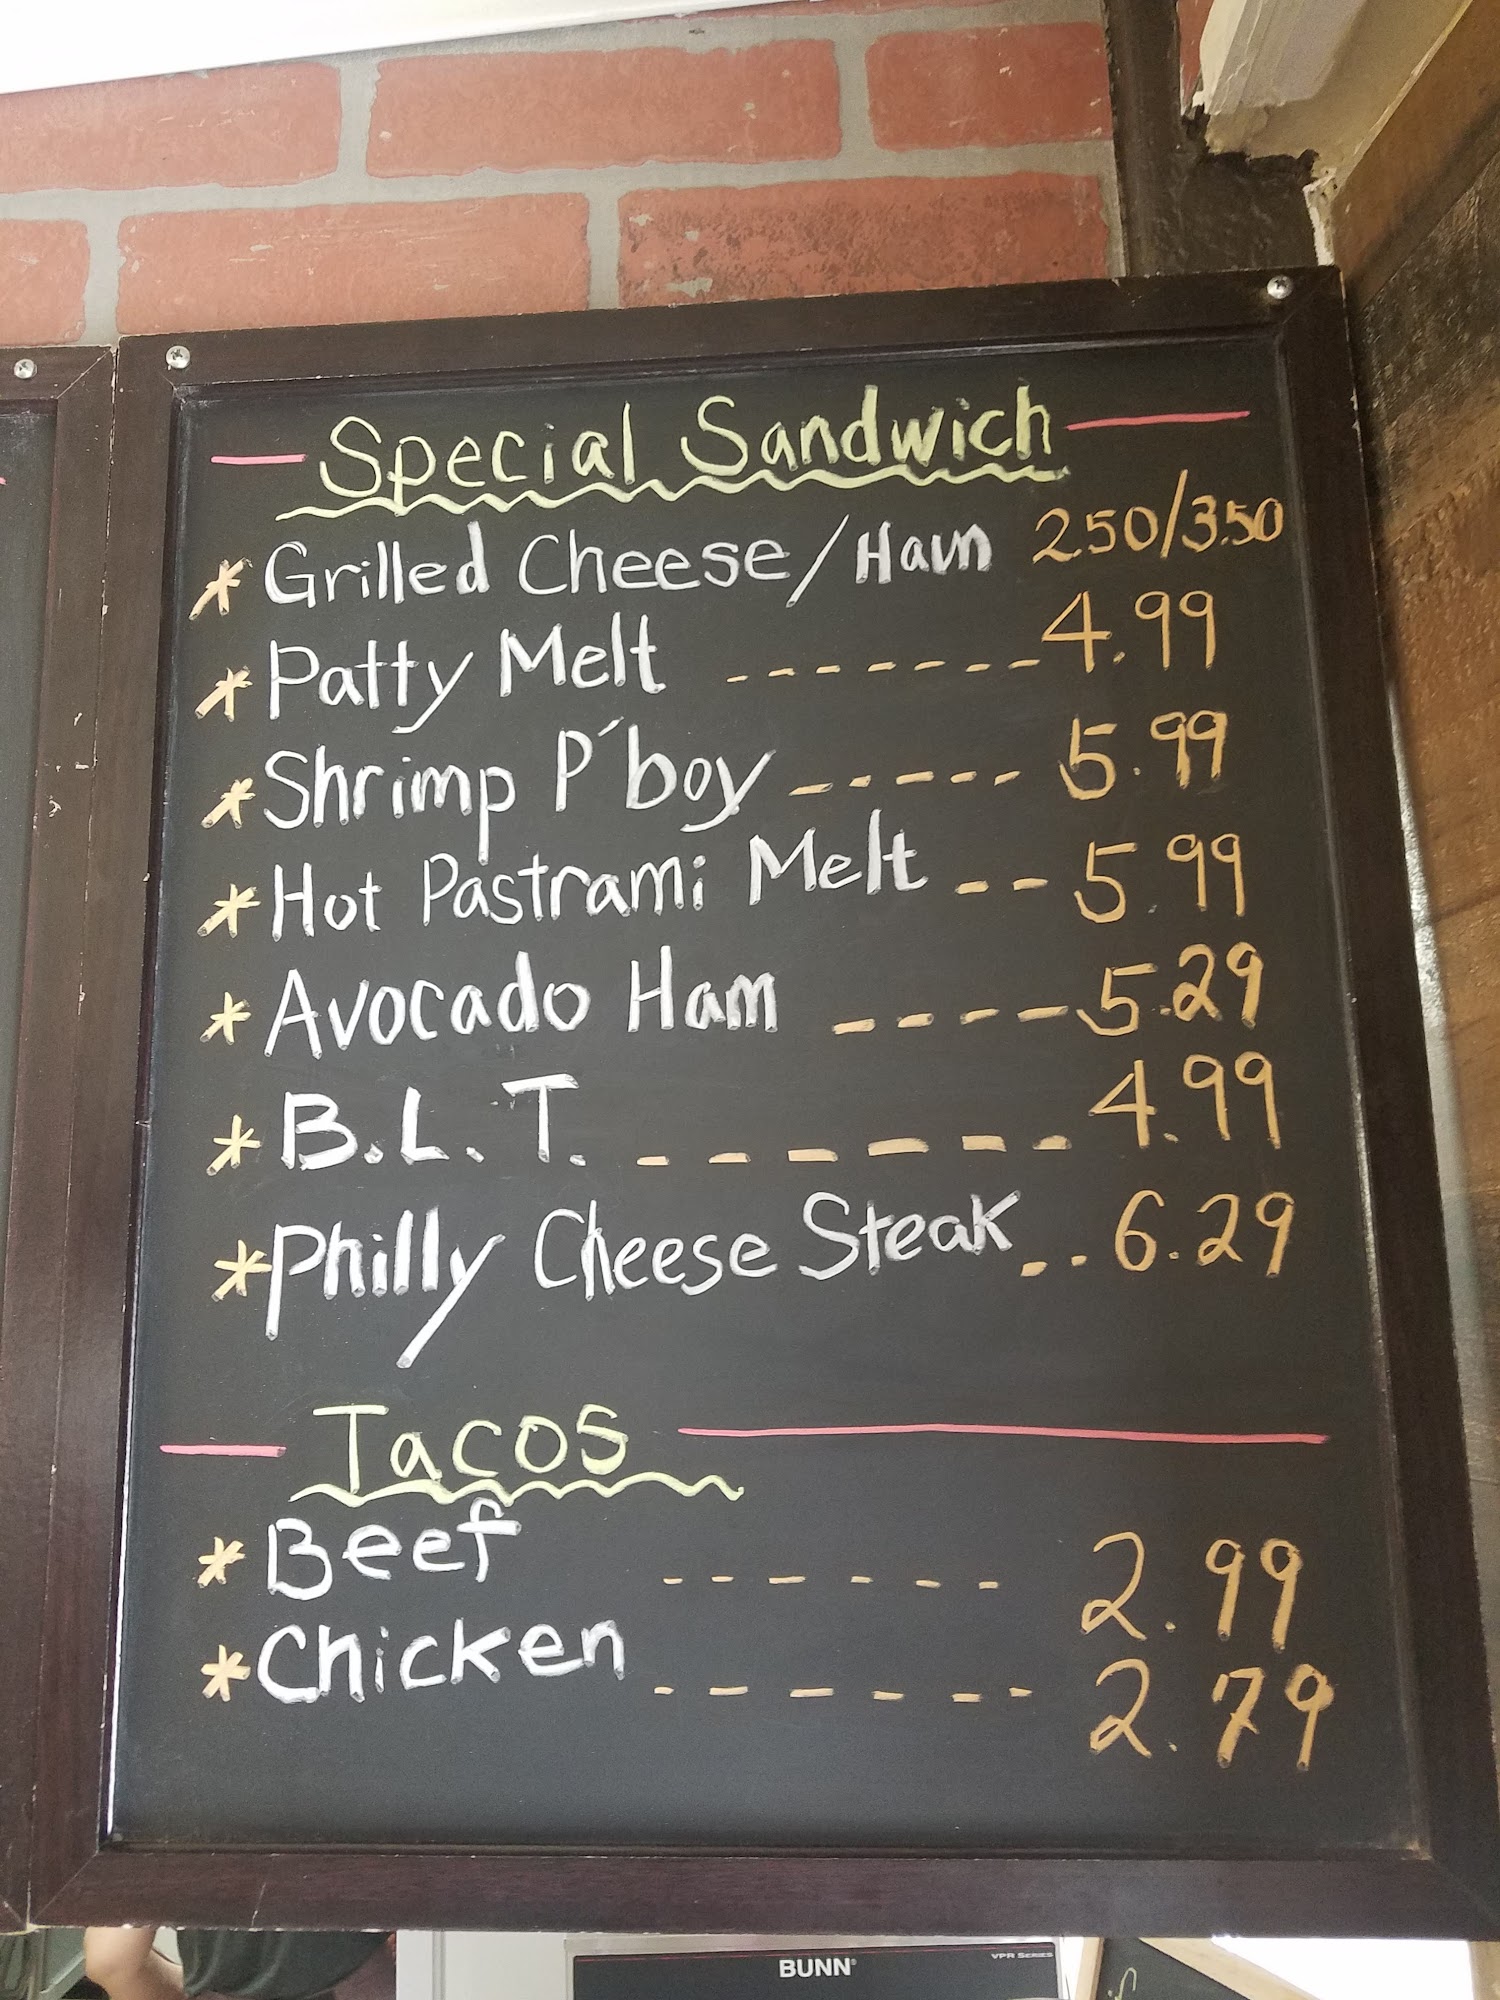 Special Sandwich
* Grilled Cheese/Ham 2.50/3.50
* Patty Melt ------- 4.99
* Shrimp P'boy ----- 5.99
* Hot Pastrami Melt -- 5.99
* Avocado Ham ---- 5.29
* B.L.T. ------ 4.99
* Philly Cheese Steak .. 6.29
Tacos
* Beef ------ 2.99
* Chicken ------ 2.79
BUNN®
VPR SERIES